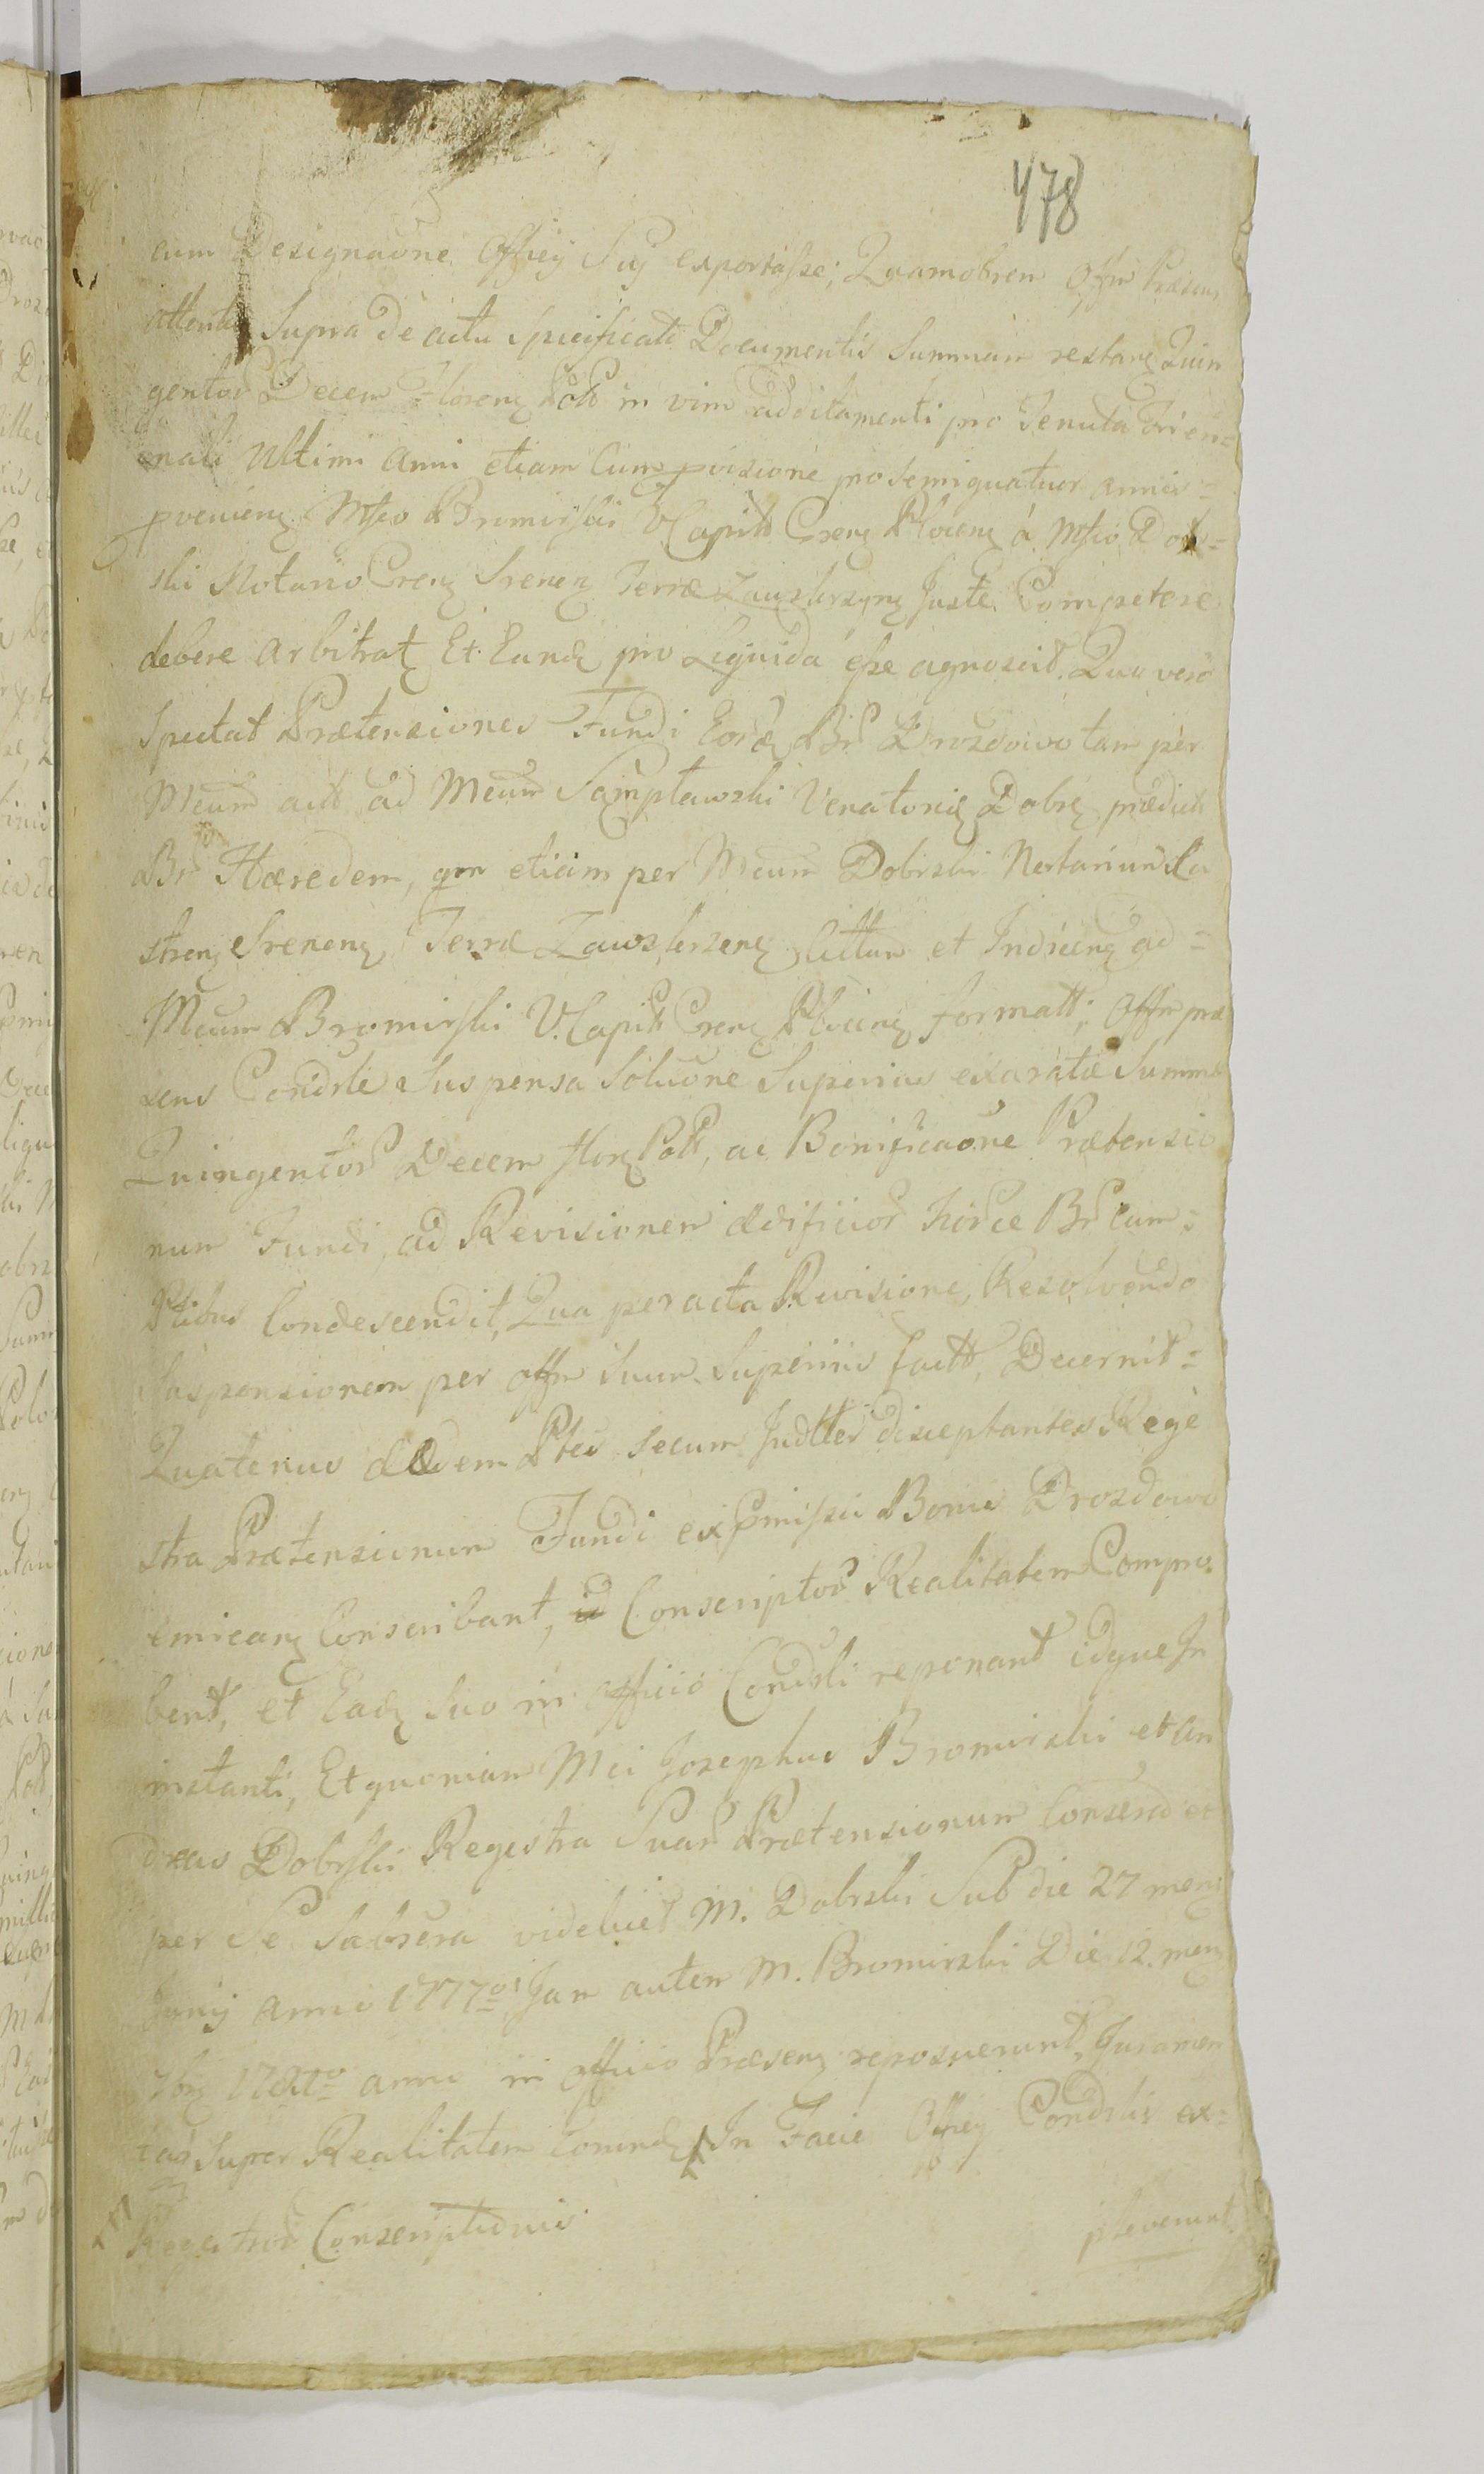 478
cum Designaone Officij Suj exportasse; Quamobrem Offm Præsens
attentis Supra de actu specificatis Documentis Summam restanȝ Quin
gentor Decem Florenȝ Poll in vim additamenti pro Tenuta Trien=
nali Ultimi anni etiam Cum pvisione pro semiquatuor annis=
pvenienȝ Mfco Bromirski VCapit Crenȝ Plocenȝ á Mfco Dobr=
ski Notario Crenȝ Srenenȝ Terræ Zawskrzynȝ Juste Competere
debere arbitratȝ Et Eandȝ pro Liquida esse agnoscit. Quo vero
Spectat Prætensiones Fundi Eordȝ Br Drozdowo tam per
Mcum act ad Mcum Sampławski Venatorie Dobrȝ prædict
Br Hæredem, qm etiam per Mcum Dobrski Notarium Ca
strenȝ Srenenȝ Terræ Zawskrzenȝ Cittum et Indicenȝ ad=
Mcum Bromirski V. Capit Crenȝ Plocenȝ formatt; Offm præ
sens Condrle Suspensa Soluone Superius exaratæ Summæ
Quingentor Decem florȝ Poll, ac Bonificaone Prætensio
num Fundi, ad Revisionem ædificior horce Br cum=
Ptibus Condescendit, Qua peracta Revisione, Resolvendo
Suspensionem per offm suum Superius factt, Decernit=
Quatenus eædem Ptes secum Judtter disceptantes Rege
stra Prætensionum Fundi ex pmissis Bonis Drozdowo
emicanȝ Conscribant, Conscriptor Realitatem Compro
bent, et Eadȝ suo in officio Condrli reponant idque In
instanti, Et quoniam Mci Josephus Bromirski et An
dreas Dobrski Regestra Suar Prætensionum Conscrd et
per Se Subscra videlicet M. Dobrski Sub die 27 mensȝ
Junij anni 1777o, Jam autem M. Bromirski Die 12. mensȝ
anni in officio Præsenȝ reposuerunt, Juramen
taqȝ Super Realitatem In Facie Officij Condrlis ex=
Regestror Conscriptionis
pleverunt